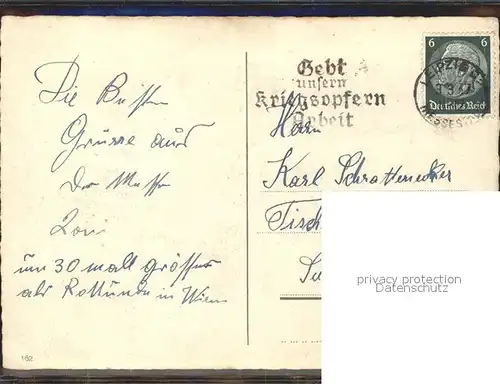 Die Besten
Grüsse aus
Der Messe
um 30 mall grösser
als Rottunde in Wien
162
Gebt
unsern
Kriegsopfern
Arbeit
6 6
Deutsches Reich
LEIPZIG
MESSESTADT
Herrn
Karl Schrattenecker
Tisch
privacy protection
Datenschutz